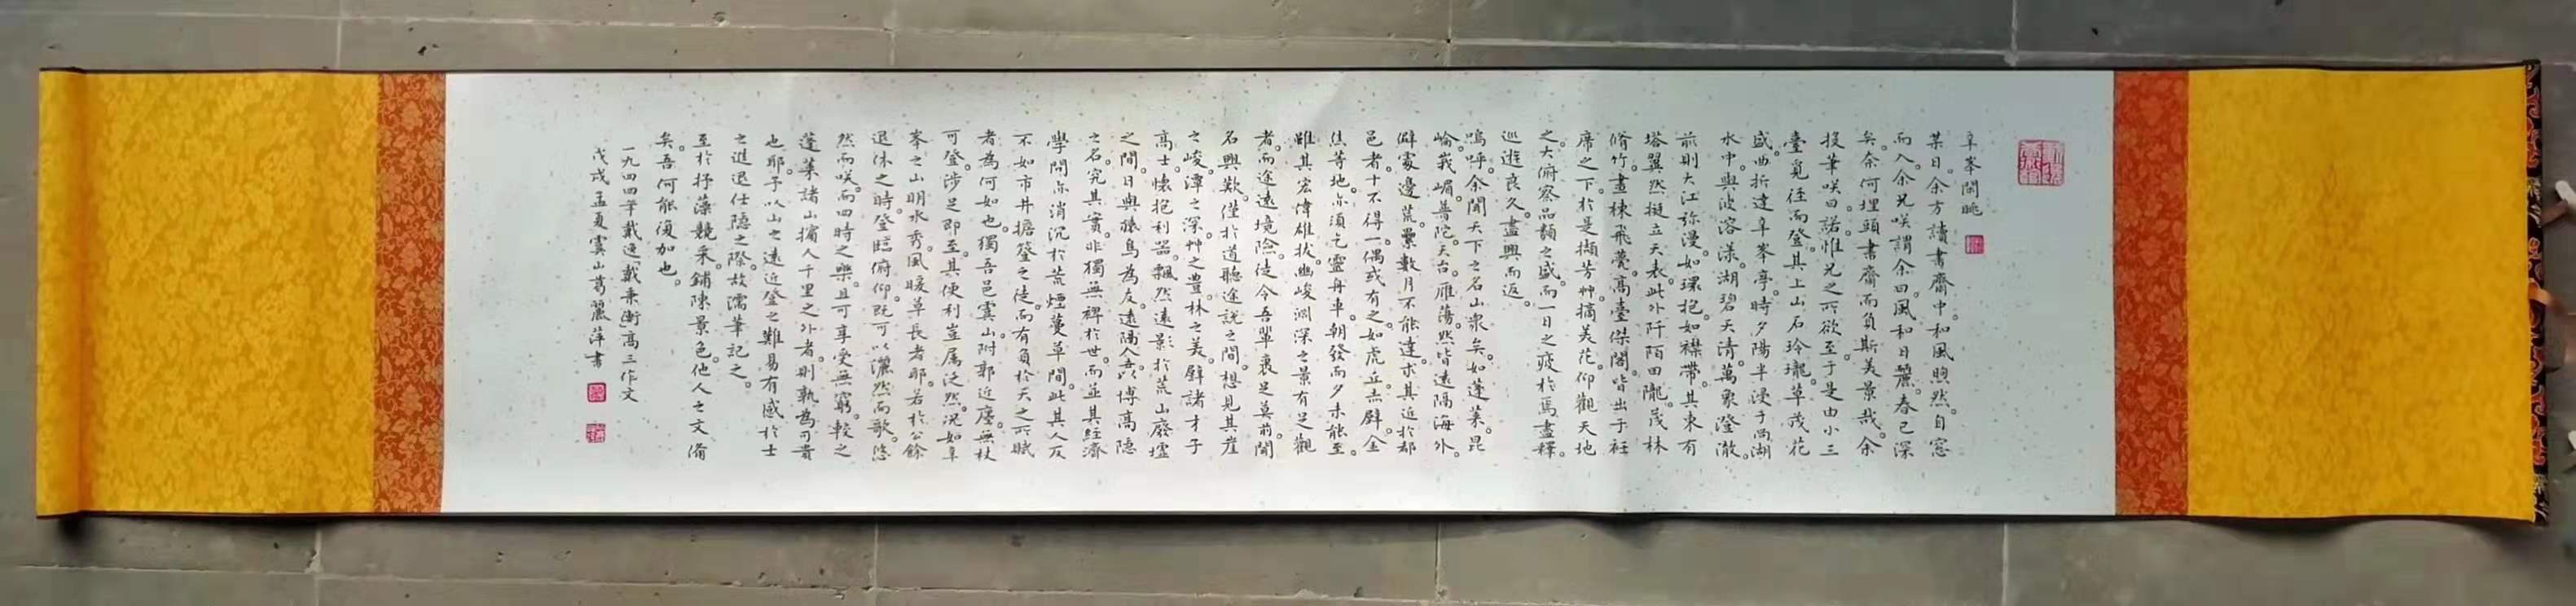 辛峯閒眺
某日。余方讀書齋中。和風煦然。自窓
而入。余兄咲謂余曰。風和日麗。春已深
矣。余何埋頭書齋而負斯美景哉。余
投筆咲曰。諾。惟兄之所欲至。于是由小三
臺覓徑而登。其上山石玲瓏。草茂花
盛。曲折達辛峯亭。時夕陽半浸于尚湖
水中。與波溶漾。湖碧天清。萬象澄澈。
前則大江弥漫。如環抱。如襟帶。其東有
塔翼然挺立天表。此外阡陌田隴。茂林
脩竹。畫棟飛甍。高臺傑閣。皆出于衽
席之下。於是擷芳艸。摘美花。仰觀天地
之大。俯察品類之盛。而一日之疲於焉盡釋。
巡遊良久。盡興而返。
嗚呼。余聞天下之名山衆矣。如蓬萊。昆
崙。峩嵋。普陀。天台。雁蕩。然皆遠隔海外。
僻處邊荒。纍數月不能達。求其近於都
邑者。十不得一。偶或有之。如虎丘。赤壁。金
焦等地。亦須乞靈舟車。朝發而夕未能至。
雖其宏偉雄拔。幽峻淵深之景有足觀
者。而途遠境險。徒令吾輩裹足莫前。聞
名興歎。僅於道聽途說之間。想見其崖
之峻。潭之深。艸之豊。林之美。騷諸才子
高士。懷抱利器。飄然遠影於荒山廢墟
之間。日與猿鳥為友。遠隔人以博高隱
之名。究其實。非獨無裨於世。而並其經濟
學問亦消沉於荒煙蔓草間。此其人反
不如市井擔簦之徒。而有負於天之所賦
者為何如也。獨吾邑虞山。附郭近廛。無杖
可登。涉足即至。其便利豈属泛然。况如辛
峯之山明水秀。風暖草長者耶。若於公餘
退休之時。登臨俯仰。既可以灑然而歌。悠
然而咲。而四時之樂。且可享受無窮。較之
蓬萊諸山擯人千里之外者。則孰為可貴
也耶。予以山之遠近登之難易有感於士
之進退仕隱之際。故濡筆記之。
至於抒藻競采。鋪陳景色。他人之文備
矣。吾何能復加也。
一九四四年戴逸「戴秉衡」高三作文
戊戌孟夏虞山葛麗萍書